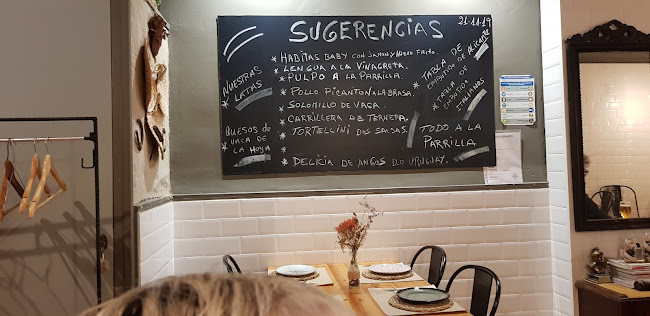 SUGERENCIAS
21-11-19
* HABITAS BABY CON JAMON Y HUEVO FRITO.
* LENGUA A LA VINAGRETA.
* PULPO A LA PARRILLA.
* POLLO PICANTON A LA BRASA.
* SOLOMILLO DE VACA.
* CARRILLERA DE TERNERA.
* TORTELLINI DOS SALSAS.
* DELICIA DE ANGUS D.O URUGUAY.
NUESTRAS
* LATAS
QUESOS DE
* VACA DE
LA HOYA
* TABLA DE
EMBUTIDO DE ALICANTE
* TABLA DE
EMBUTIDOS
ITALIANOS
TODO A LA
PARRILLA